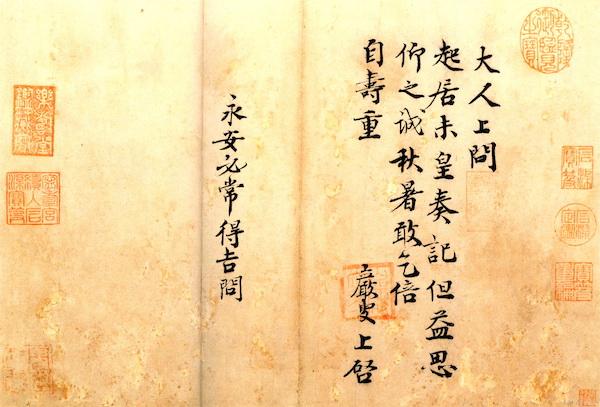 乾隆御覽之寶
大人上問
起居未皇奏記但益思
仰之誠秋暑敢乞倍
自壽重
巖叟上啓
永安必常得吉問